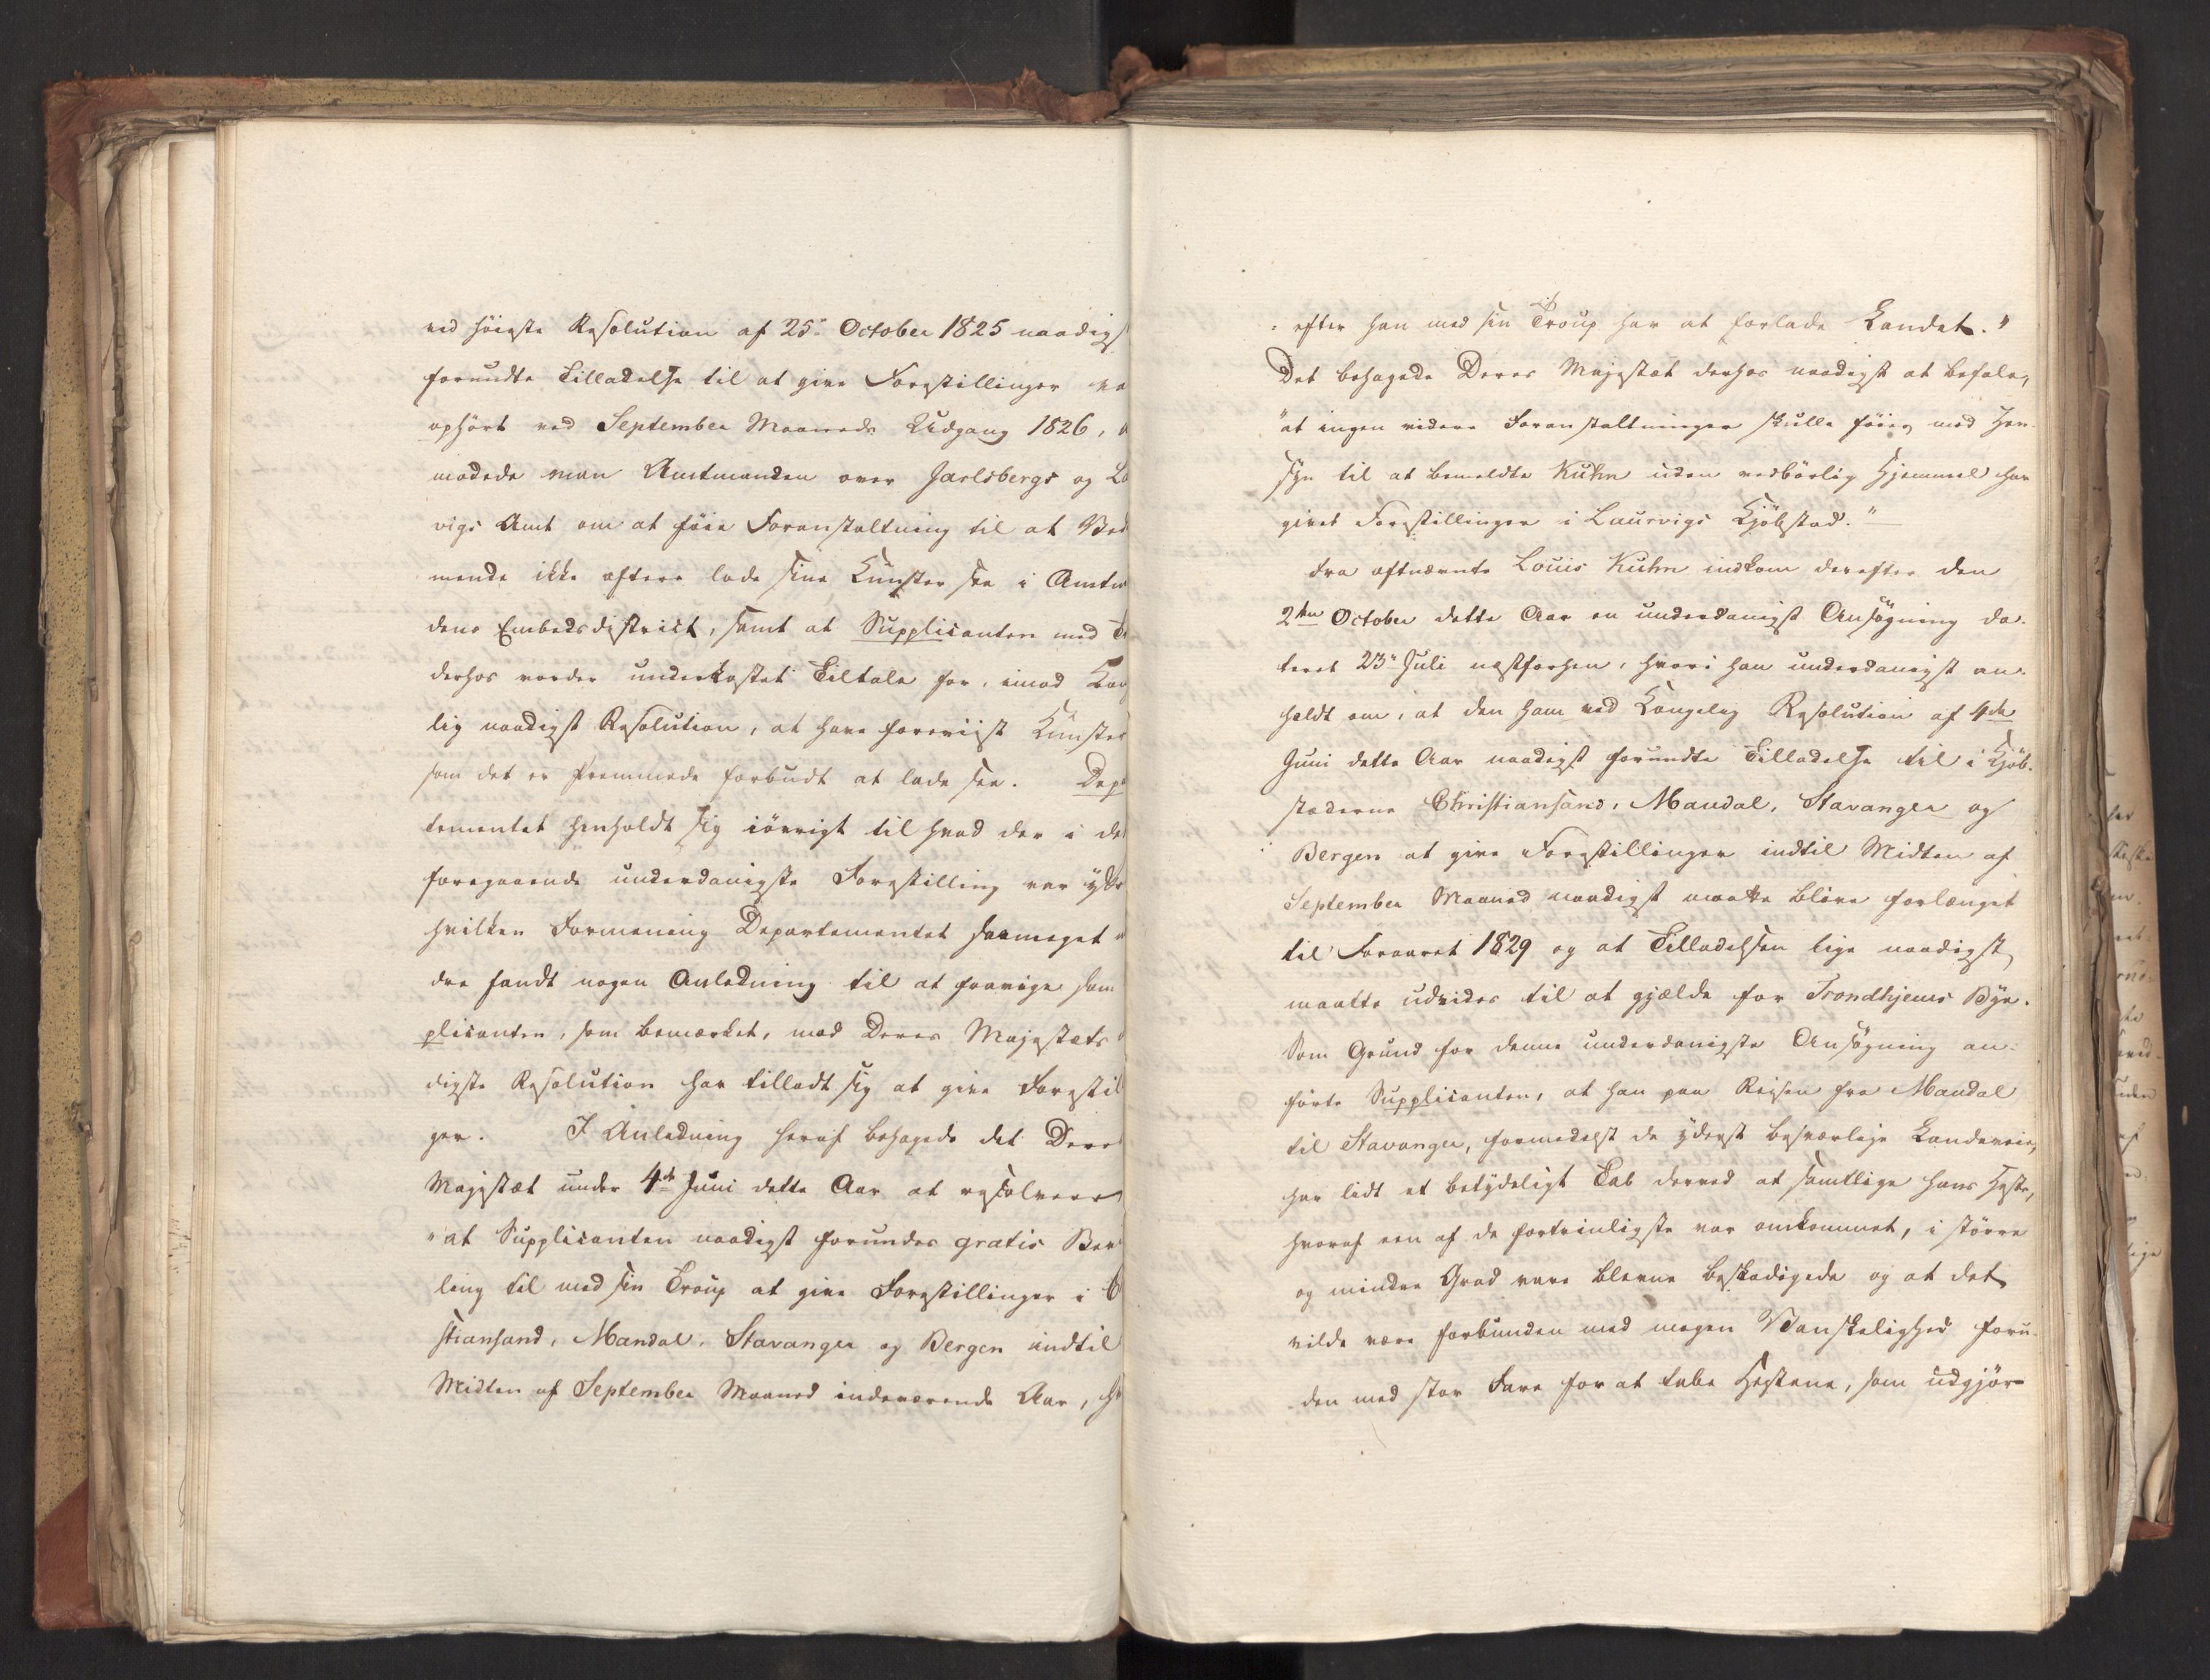 ved høieste Resolution af 25de October 1825 naadigst
forundte Tilladelse til at give Forestillinger va
ophørt ved September Maaneds Udgang 1826, a
modede man Amtmanden over Jarlsbergs og La
vigs Amt om at føie Foranstaltning til at Ved
mende ikke oftere lode sine Kunster see i Amtm
dens Embedsdistrict, samt at Supplicanten med
derhos vorder underkastet Tiltale for, imod Kon
lig naadigst Resolution, at have foreviist Kunster
som det er Fremmede forbudt at lade see. Dep
tementet henholdt sig iøvrigt til hvad der i de
foregaaende underdanigste Forestilling var yttr
hvilken Formening Departementet saameget
dre fandt nogen Anledning til at fravige som
plicanten, som bemærket, mod Deres Majestæts
digste Resolution har tilladt sig at give Forestil
ger. I Anledning heraf behagede det Deres
Majestæt under 4de Juni dette Aar at resolvere
"at Supplicanten naadigst forundes gratis Bev
ling til med sin Troup at give Forestillinger i C
stiansand, Mandal, Stavanger og Bergen indtil
Midten af September Maaned indeværende Aar, h
"efter han med sin Troup har at forlade Landet."
Det behagede Deres Majestæt derhos naadigst at befale,
"at ingen videre Foranstaltninger skulle føies med Hen-
syn til at bemeldte Kuhn uden vedbørlig Hjemmel har
givet Forestillinger i Laurvigs Kjøbstad."
Fra oftnævnte Louis Kuhn indkom derefter den
2den October dette Aar en underdanigst Ansøgning da-
teret 23de Juli næstforhen, hvori han underdanigst an-
holdt om, at den ham ved Kongelig Resolution af 4de
Juni dette Aar naadigst forundte Tilladelse til i Kjøb-
stæderne Christiansand, Mandal, Stavanger og
Bergen at give Forestillinger indtil Midten af
September Maaned naadigst maatte blive forlænget
til Foraaret 1829 og at Tilladelsen lige naadigst
maatte udvides til at gjælde for Trondhjems Bye.
Som Grund for denne underdanigste Ansøgning an-
førte Supplicanten, at han paa Reisen fra Mandal
til Stavanger, formedelst de yderst besværlige Landeveie,
har lidt et betydeligt Tab derved at samtlige hans Heste,
hvoraf een af de fortrinligste var omkommet, i større
og mindre Grad vare blevne beskadigede og at det
vilde være forbunden med megen Vanskelighed foru-
den med stor Fare for at tabe Hestene, som udgjør